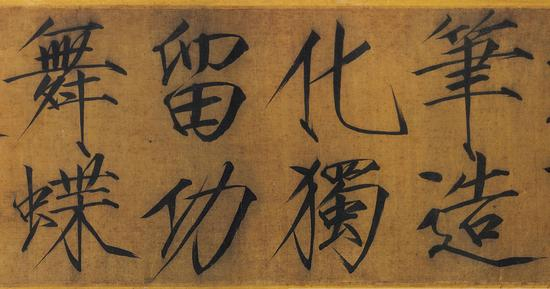 筆造
化獨
留功
舞蝶